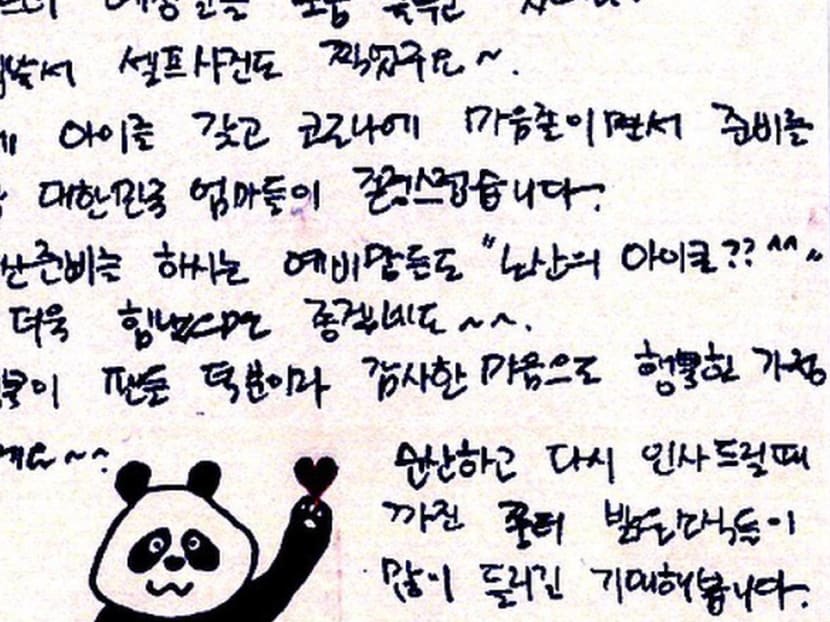 셀프사진도 찍었구요~.
아이를 갖고 코로나에 마음졸이면서 준비를
대한민국 엄마들이 존경스럽습니다~.
하시는 예비맘들도 "노산의 아이콘??^^"
더욱 힘냈으면 좋겠네요~~.
감사한 마음으로 행복한 가정
순산하고 다시 인사드릴때
까진 좋은
많이 들리길 기대해봅니다.